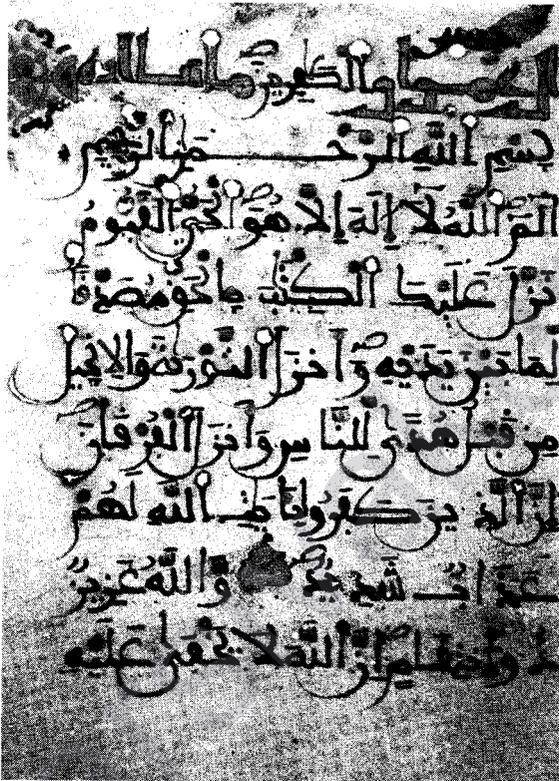 الكفرين
بِسْمِ اللَّهِ الرَّحْمَٰنِ الرَّحِيمِ
الٓمٓ اللَّهُ لَا إِلَٰهَ إِلَّا هُوَ الْحَيُّ الْقَيُّومُ
نَزَّلَ عَلَيْكَ الْكِتَٰبَ بِالْحَقِّ مُصَدِّقًا
لِّمَا بَيْنَ يَدَيْهِ وَأَنزَلَ التَّوْرَىٰةَ وَالْإِنجِيلَ
مِن قَبْلُ هُدًى لِّلنَّاسِ وَأَنزَلَ الْفُرْقَانَ
إِنَّ الَّذِينَ كَفَرُوا بِـَٔايَٰتِ اللَّهِ لَهُمْ
عَذَابٌ شَدِيدٌ وَاللَّهُ عَزِيزٌ
ذُو انتِقَامٍ إِنَّ اللَّهَ لَا يَخْفَىٰ عَلَيْهِ